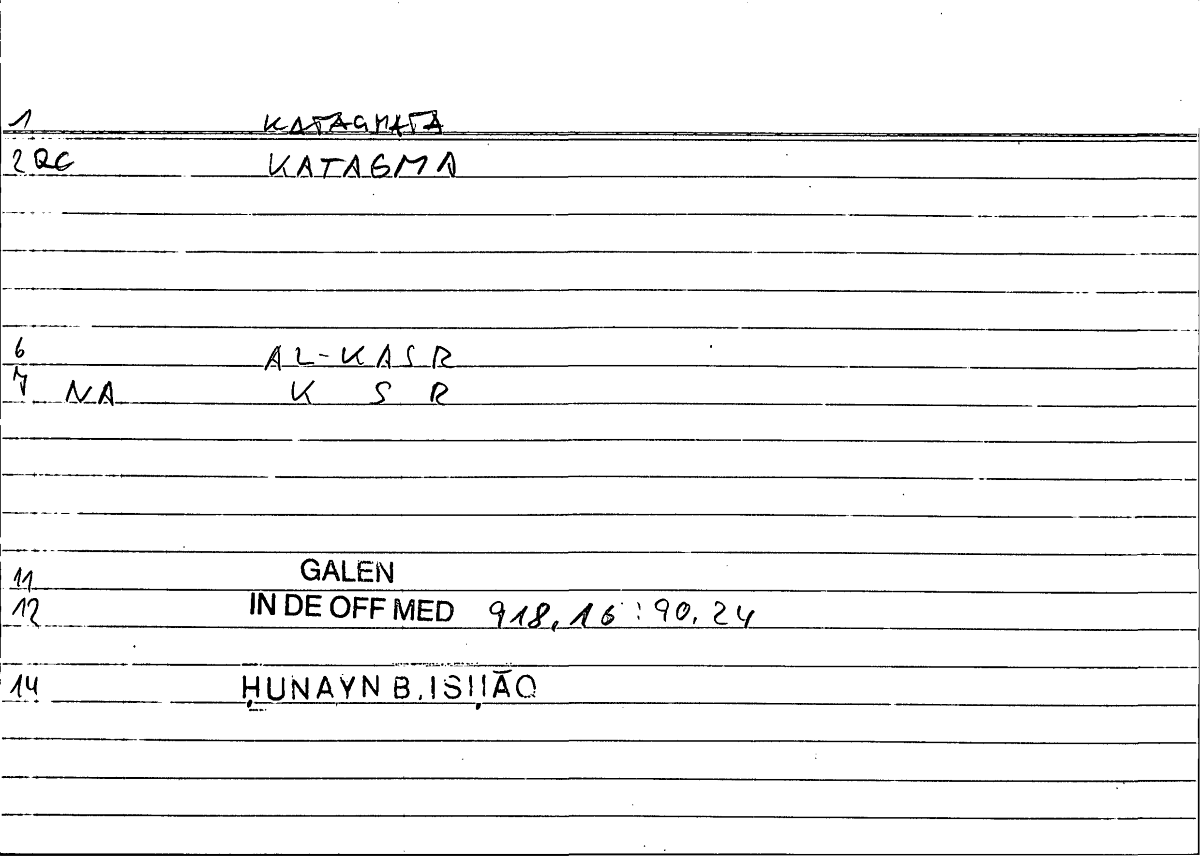 1 KATAGMATA
2 QC KATAGMA
6 AL-KASR
7 NA K S R
11 GALEN
12 IN DE OFF MED 918,16:90.24
14 ḤUNAYN B. ISḤĀQ